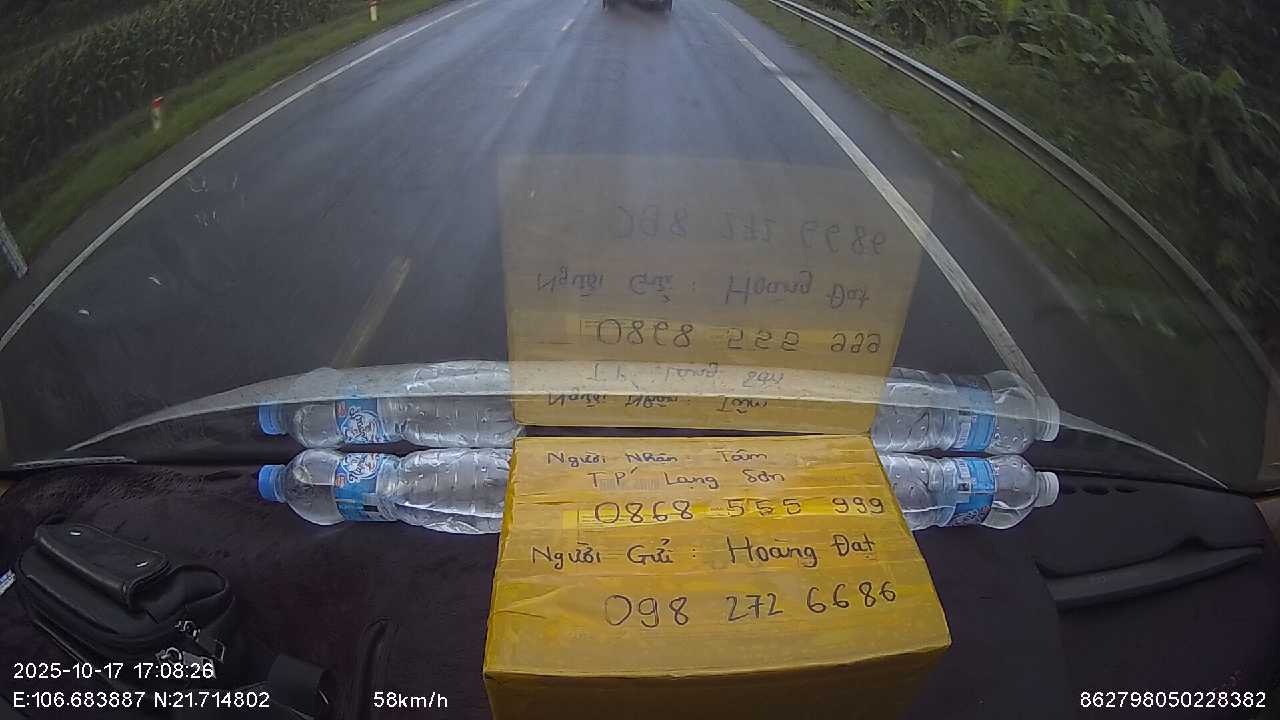 Người Nhãn: Tâm
T.P Lạng Sơn
0868 555 999
Người Gửi : Hoàng Đạt
098 272 6686
2025-10-17 17:08:26
E:106.683887 N:21.714802
58km/h
862798050228382